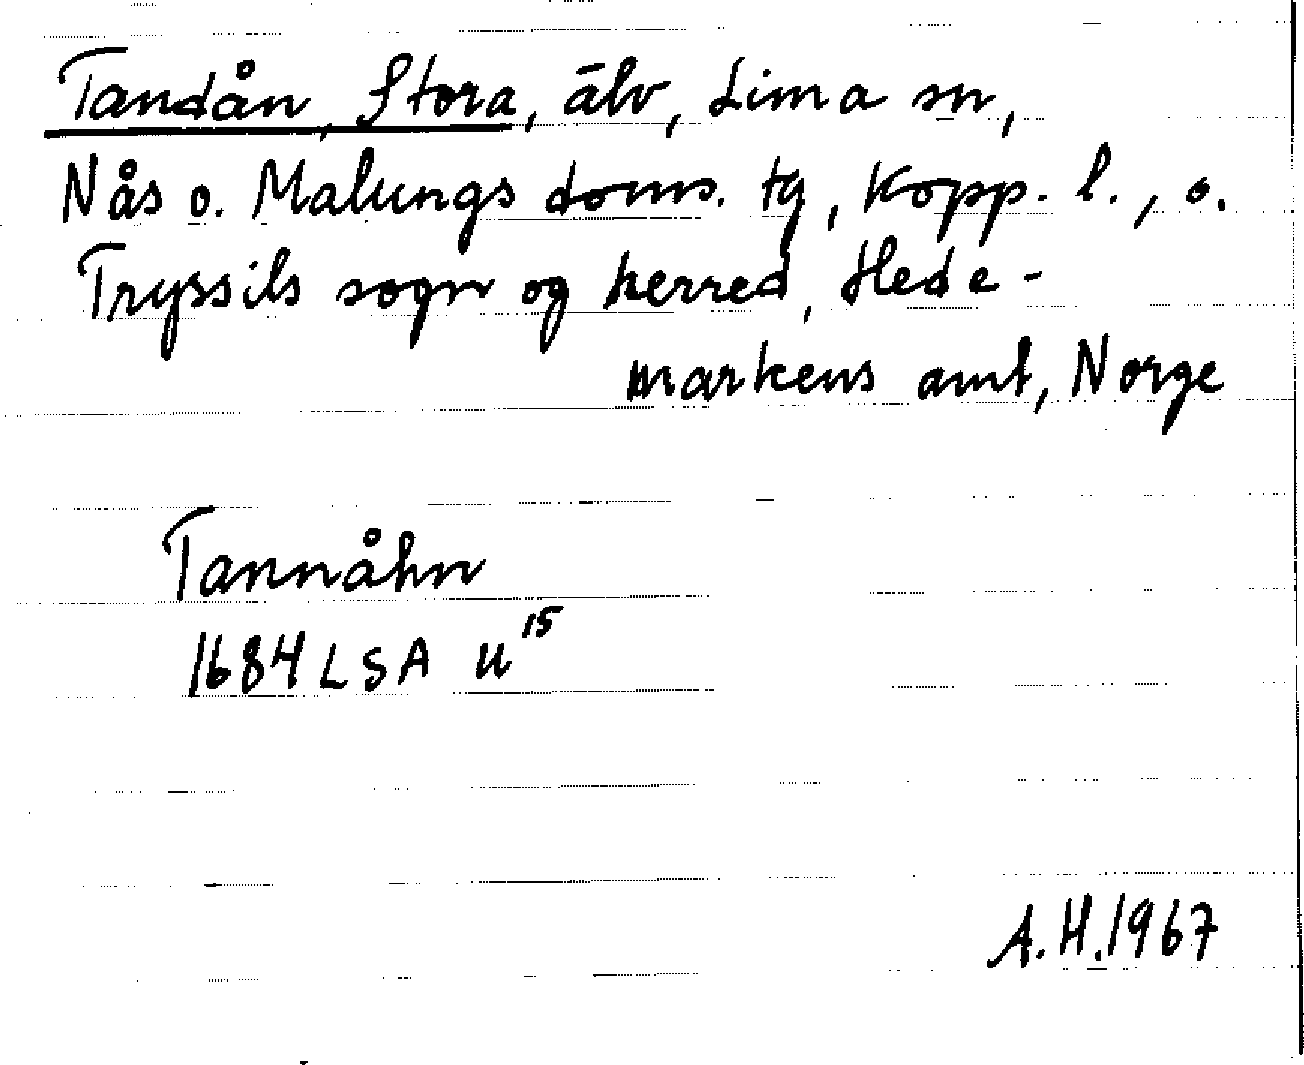 Tandån, Stora, älv, Lima sn,
Nås o. Malungs doms. tg, Kopp. l., o.
Tryssils sogn og herred, Hede-
markens amt, Norge
Tannåhn
1684 LSA U15
A.H.1967